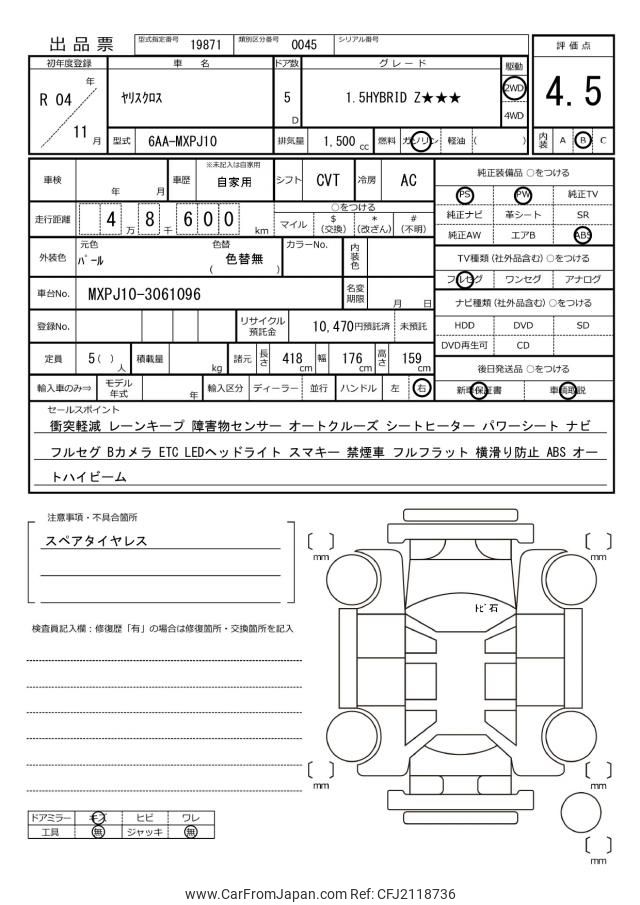 出品票 型式指定番号 19871 類別区分番号 0045 シリアル番号
評価点
4.5
内装 A B C
初年度登録 車名 ドア数 グレード 駆動
R 04 年 11 月
ヤリスクロス 5 D 1.5HYBRID Z★★★ 2WD 4WD
型式 6AA-MXPJ10 排気量 1,500 cc 燃料 ガソリン 軽油 ( )
車検 年 月 車歴 ※未記入は自家用 自家用 シフト CVT 冷房 AC
走行距離 4 万 8 千 6 0 0 km
○をつける
マイル $ (交換) * (改ざん) # (不明)
外装色 元色 パール 色替 色替無 ( ) カラーNo. 内装色
車台No. MXPJ10-3061096 名変期限 月 日
登録No. リサイクル預託金 10,470円預託済 未預託
定員 5( ) 人 積載量 kg 諸元 長さ 418 cm 幅 176 cm 高さ 159 cm
輸入車のみ⇒ モデル年式 年 輸入区分 ディーラー 並行 ハンドル 左 右
純正装備品 ○をつける
PS PW 純正TV
純正ナビ 革シート SR
純正AW エアB ABS
TV種類(社外品含む) ○をつける
フルセグ ワンセグ アナログ
ナビ種類(社外品含む) ○をつける
HDD DVD SD
DVD再生可 CD
後日発送品 ○をつける
新車保証書 車輌取説
セールスポイント
衝突軽減 レーンキープ 障害物センサー オートクルーズ シートヒーター パワーシート ナビ
フルセグ Bカメラ ETC LEDヘッドライト スマキー 禁煙車 フルフラット 横滑り防止 ABS オー
トハイビーム
注意事項・不具合箇所
スペアタイヤレス
検査員記入欄:修復歴「有」の場合は修復箇所・交換箇所を記入
〔 〕 mm
〔 〕 mm
トビ石
〔 〕 mm
〔 〕 mm
〔 〕 mm
ドアミラー キズ ヒビ ワレ
工具 無 ジャッキ 無
www.CarFromJapan.com Ref: CFJ2118736